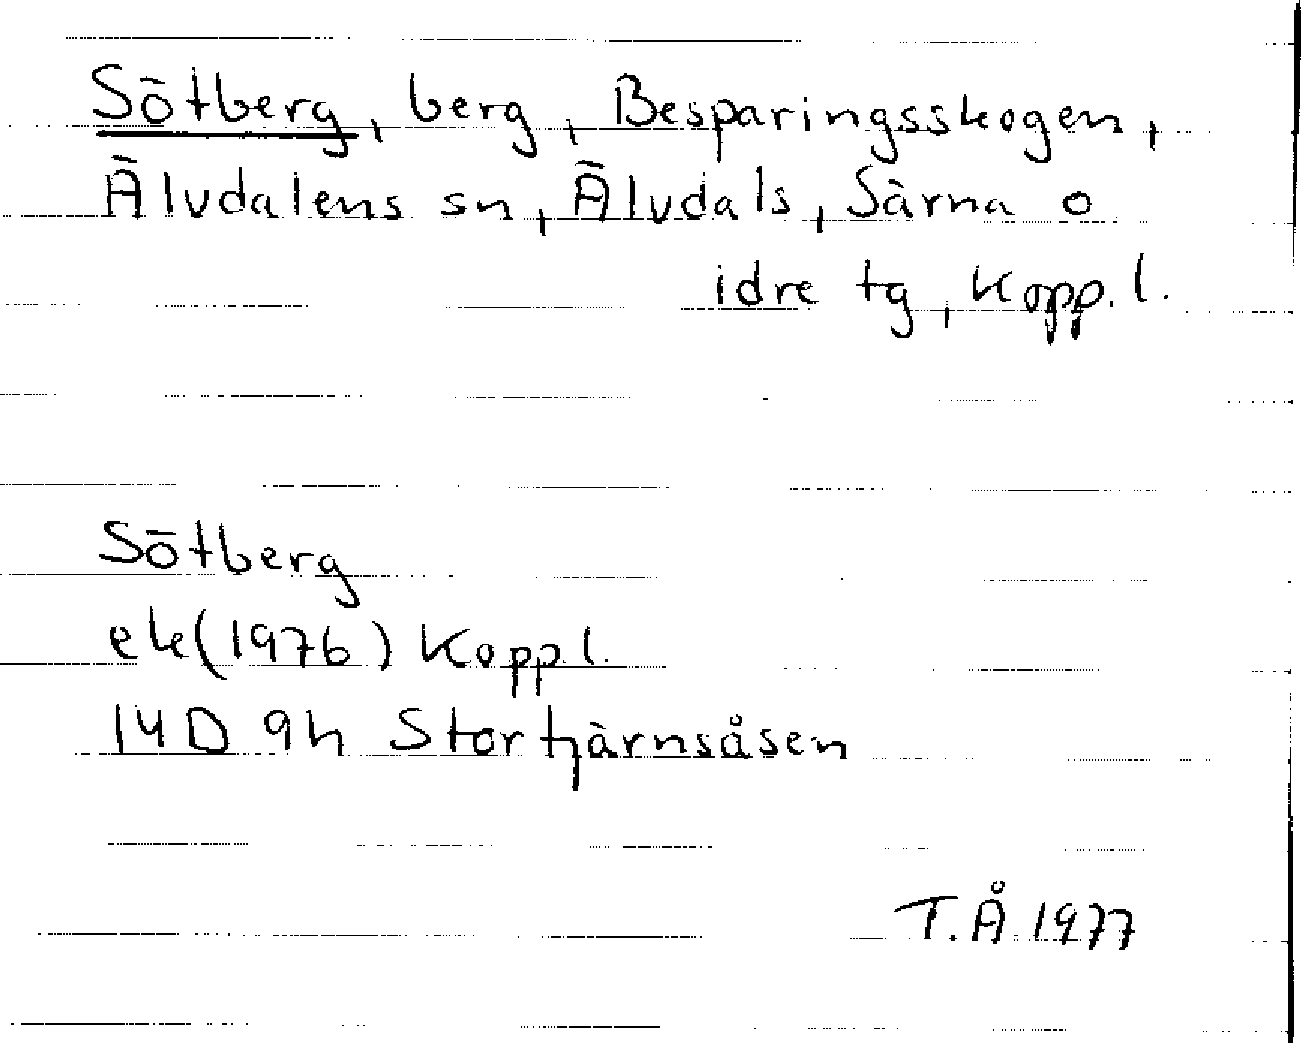 Sötberg, berg, Besparingsskogen,
Älvdalens sn, Älvdals, Särna o
idre tg, Kopp. l.
Sötberg
ek(1976) Kopp l.
14D 9h Stortjärnsåsen
T.Å 1977